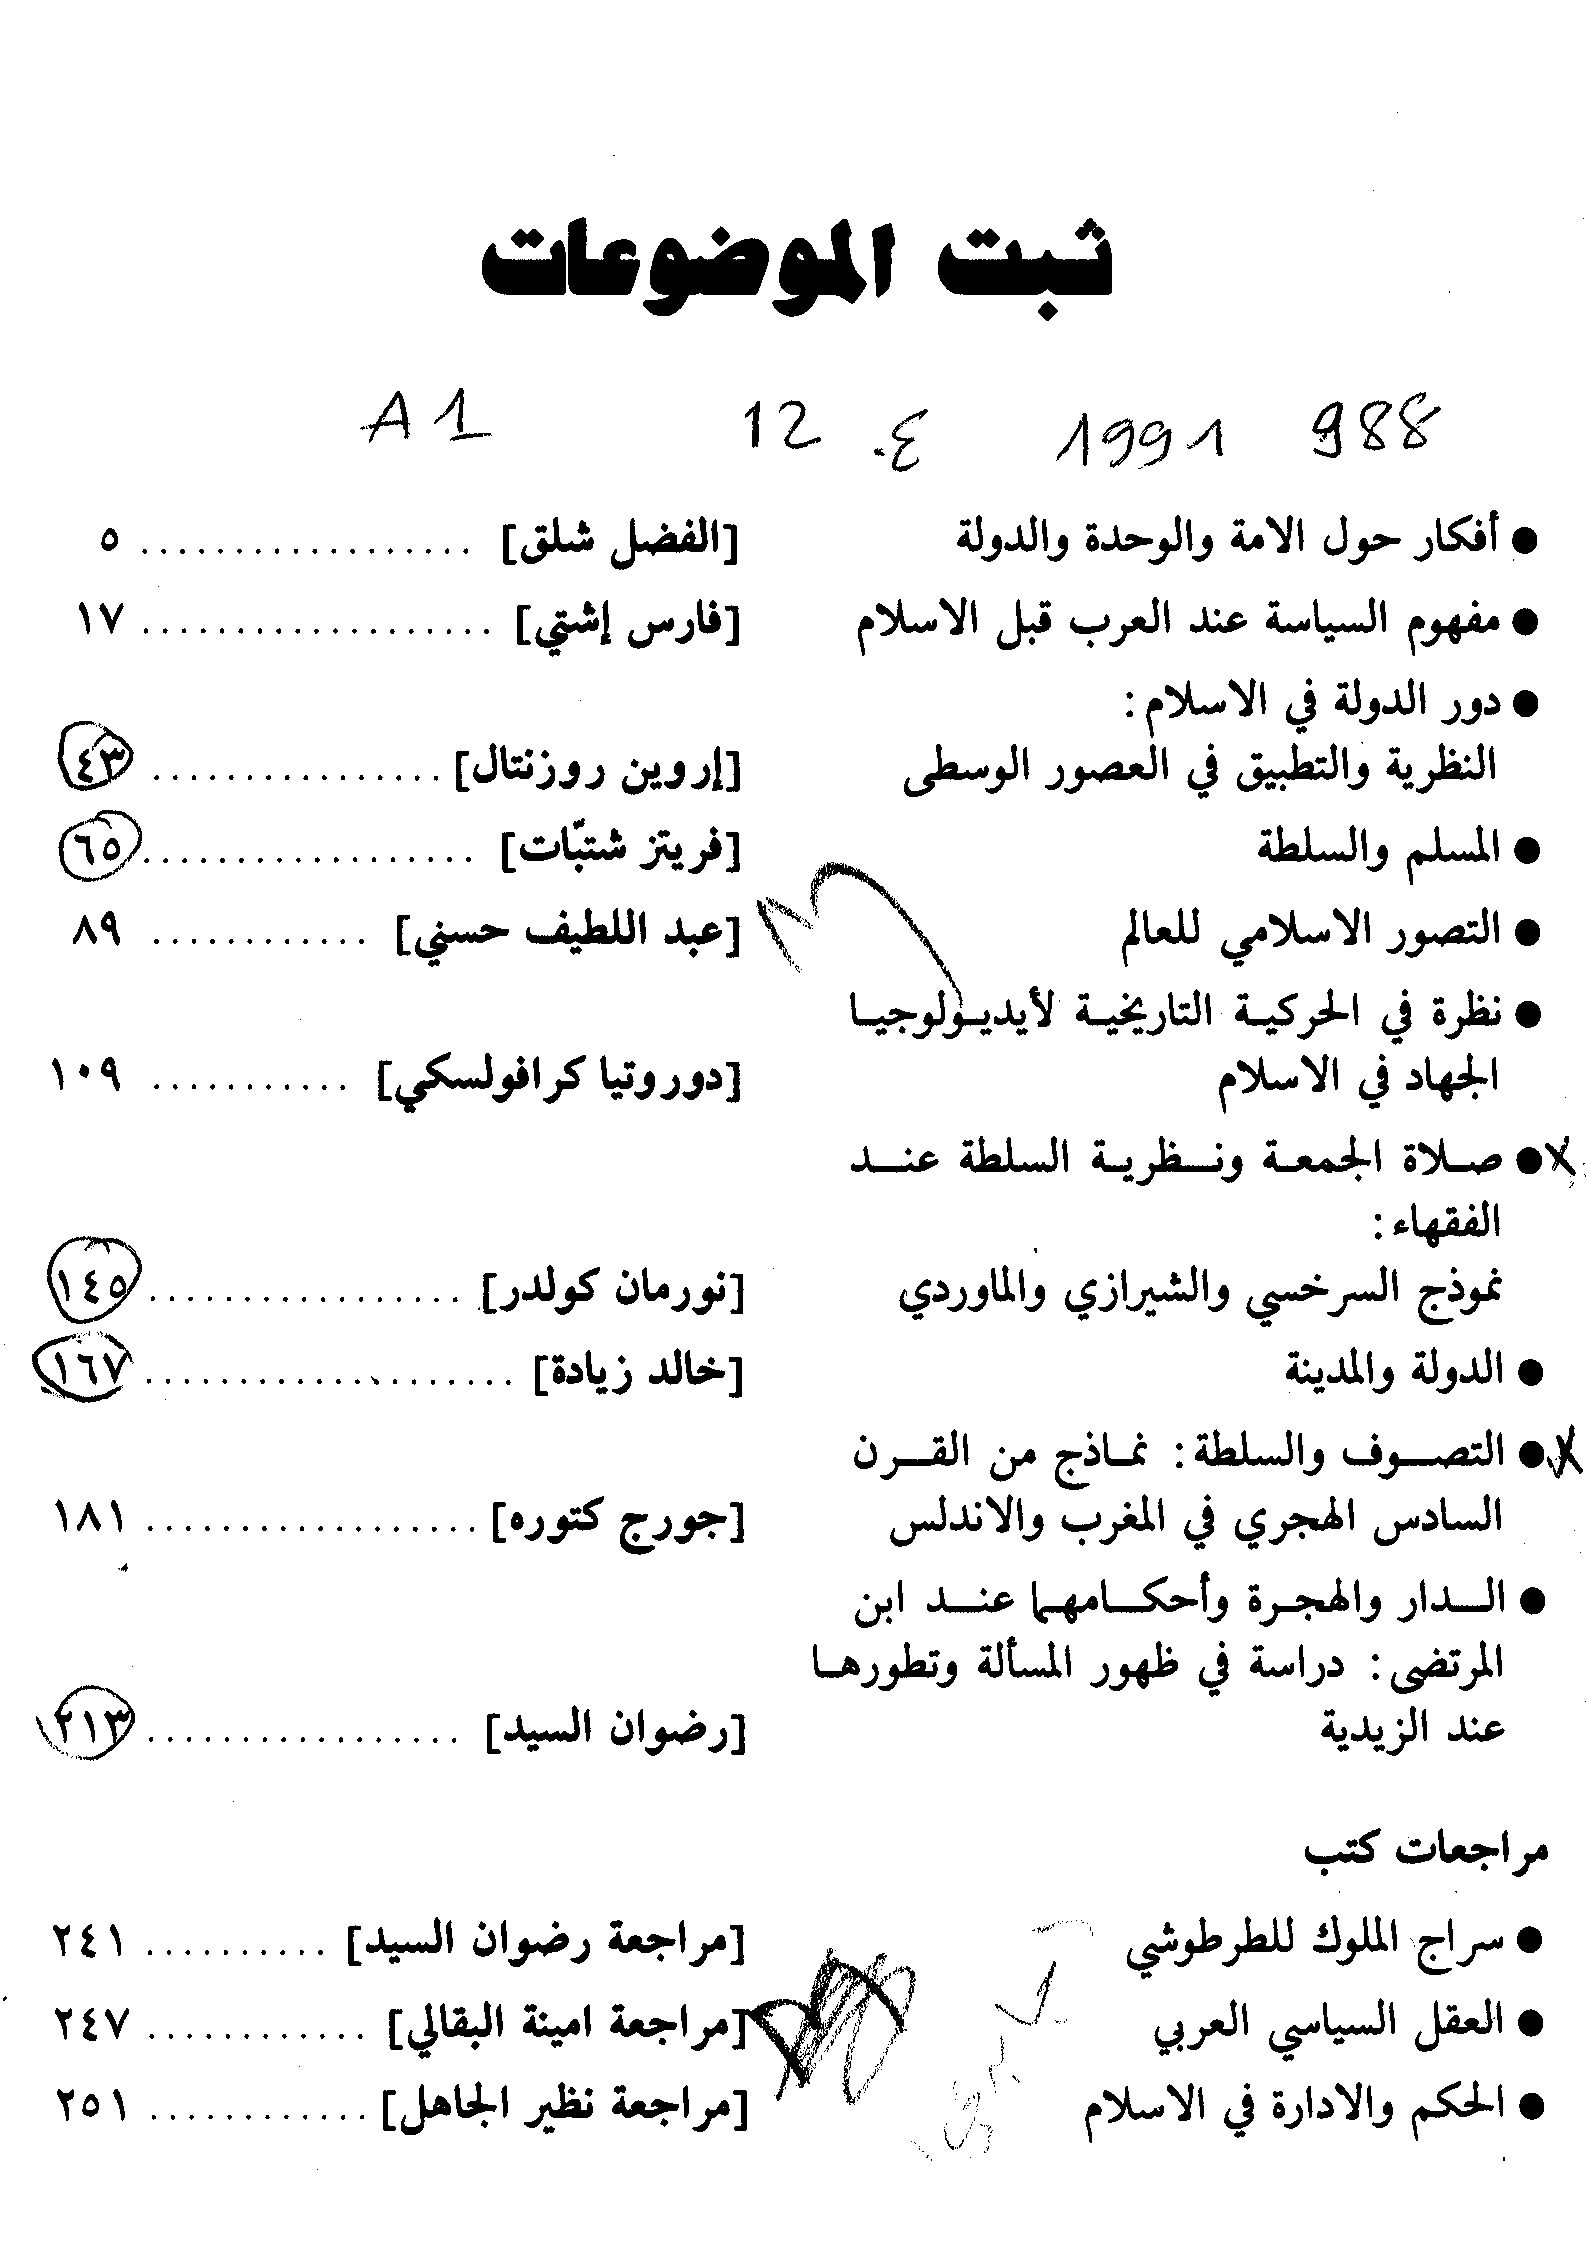 ثبت الموضوعات
A1 12 .ع 1991 988
● أفكار حول الامة والوحدة والدولة [الفضل شلق] .................. ٥
● مفهوم السياسة عند العرب قبل الاسلام [فارس إشتي] ................... ١٧
● دور الدولة في الاسلام:
النظرية والتطبيق في العصور الوسطى [إروين روزنتال] ................ ٤٣
● المسلم والسلطة [فريتز شتبّات] .................. ٦٥
● التصور الاسلامي للعالم [عبد اللطيف حسني] ............ ٨٩
● نظرة في الحركية التاريخية لأيديولوجيا
الجهاد في الاسلام [دوروتيا كرافولسكي] ........... ١٠٩
x ● صلاة الجمعة ونظرية السلطة عند
الفقهاء:
نموذج السرخسي والشيرازي والماوردي [نورمان كولدر] ................. ١٤٥
● الدولة والمدينة [خالد زيادة] .................... ١٦٧
x ● التصوف والسلطة: نماذج من القرن
السادس الهجري في المغرب والاندلس [جورج كتوره] .................. ١٨١
● الدار والهجرة وأحكامهما عند ابن
المرتضى: دراسة في ظهور المسألة وتطورها
عند الزيدية [رضوان السيد] ................. ٢١٣
مراجعات كتب
● سراج الملوك للطرطوشي [مراجعة رضوان السيد] .......... ٢٤١
● العقل السياسي العربي [مراجعة امينة البقالي] ............ ٢٤٧
● الحكم والادارة في الاسلام [مراجعة نظير الجاهل] ............ ٢٥١